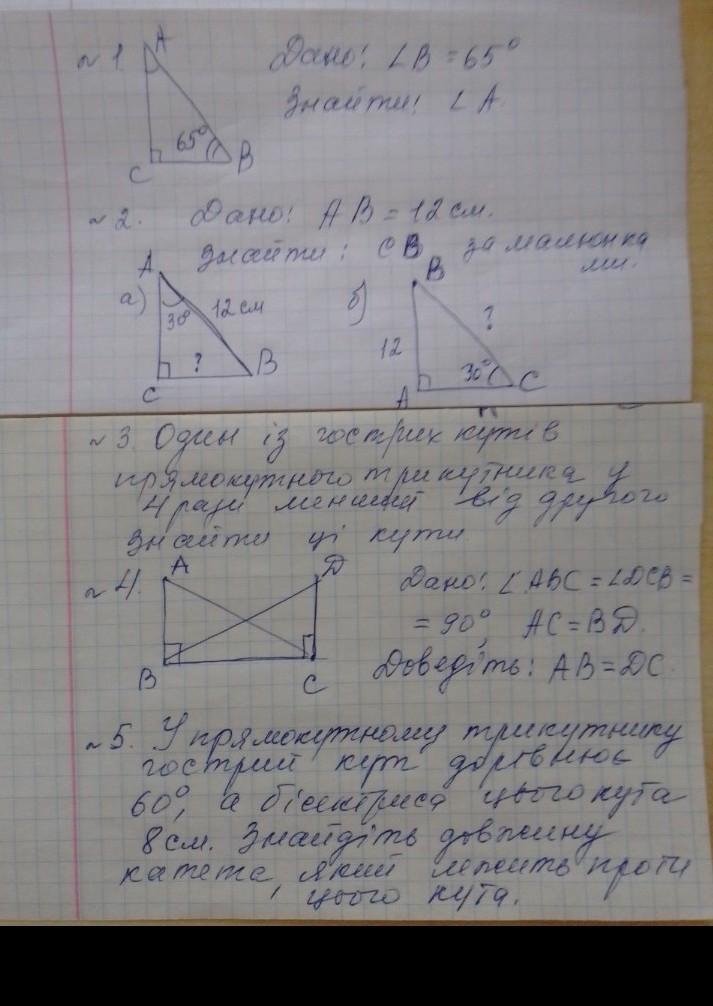 № 1. Дано: ∠B = 65°
Знайти: ∠A.
A
65°
C
B
№ 2. Дано: AB = 12 см.
Знайти: CB за малюнка
ми.
а)
A
30°
12 см
?
C
B
б)
B
12
?
30°
A
C
№ 3. Один із гострих кутів
прямокутного трикутника у
4 рази менший від другого
Знайти ці кути
№ 4.
A
D
B
C
Дано: ∠ABC = ∠DCB =
= 90°, AC = BD.
Доведіть: AB = DC.
№ 5. У прямокутному трикутнику
гострий кут дорівнює
60°, а бісектриса цього кута
8 см. Знайдіть довжину
катета, який лежить проти
цього кута.